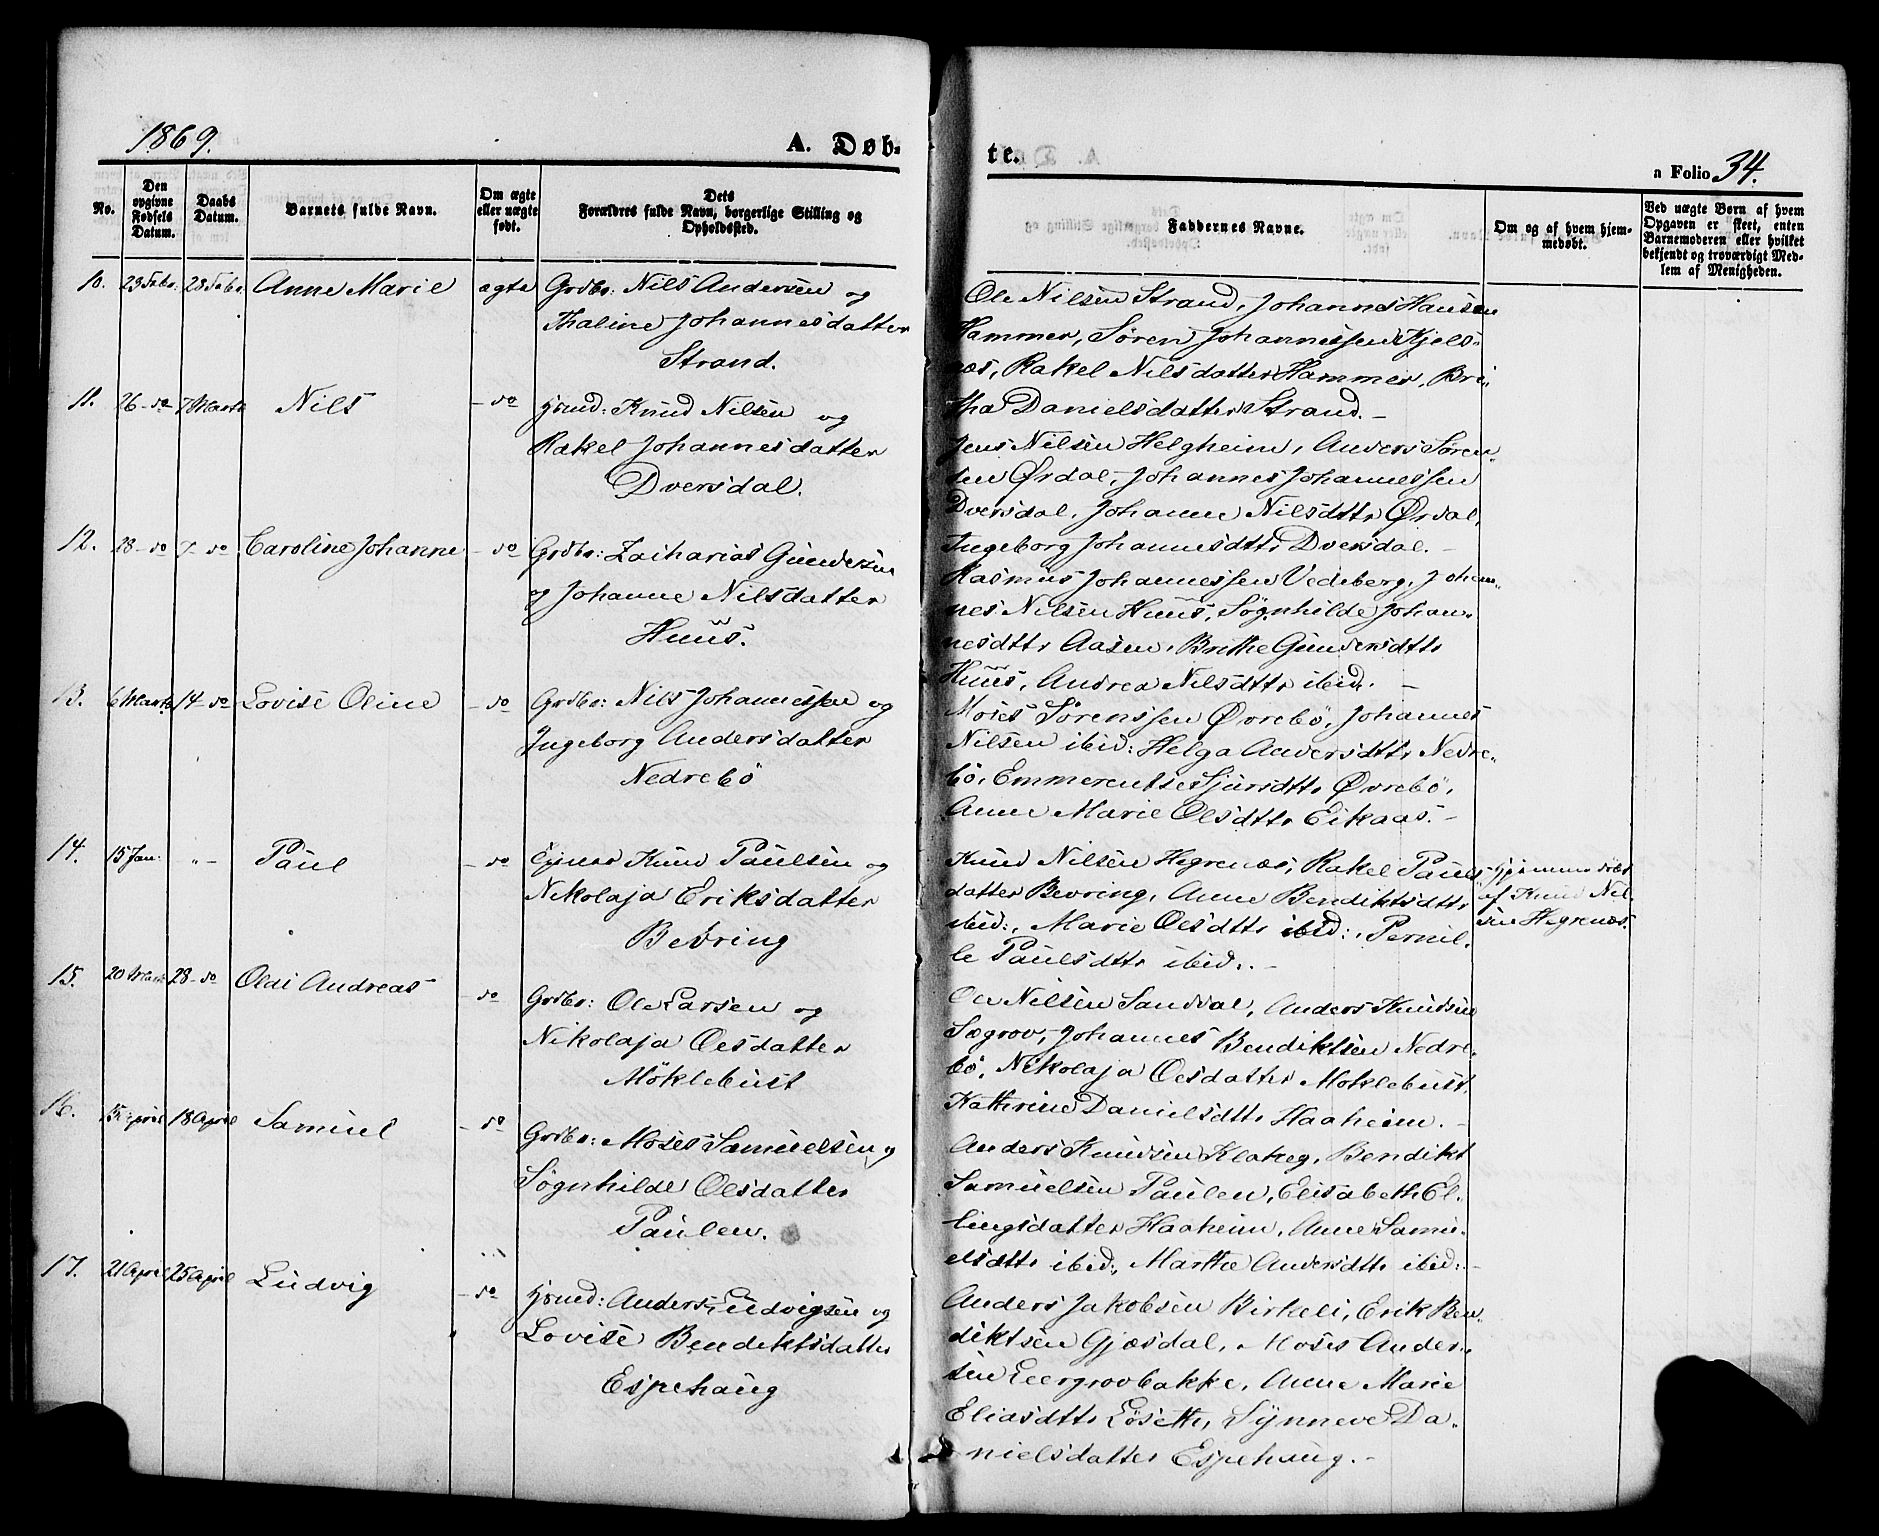 1869.
A. Døb-
te.
a Folio 34.
No.
Den opgivne Fødsels Datum.
Daabs Datum.
Barnets fulde Navn.
Om ægte eller uægte født.
Dets Forældres fulde Navn, borgerlige Stilling og Opholdssted.
Faddernes Navne.
Om og af hvem hjem-
medøbt.
Ved uægte Børn af hvem
Opgaven er skeet, enten
Barnemoderen eller hvilket
bekjendt og troværdigt Med-
lem af Menigheden.
10. 23 Febr: 28 Febr. Anne Marie ægte Grdbr: Nils Andersen og
Thaline Johannesdatter
Strand.
Ole Nilsen Strand, Johannes Hansen
Hammer, Søren Johannessen Kjels-
næs, Rakel Nilsdatter Hammer, Bri-
tha Danielsdatter Strand. -
11. 26 - do 7 Marts Nils - do Hsmd: Knud Nilsen og
Rakel Johannesdatter
Dversdal.
Jens Nilsen Helgheim, Anders Søren-
sen Ørdal, Johannes Johannessen
Dversdal, Johanne Nilsdtr Ørdal,
Ingeborg Johannesdtr Dversdal. -
12. 28 - do 7 - do Caroline Johanne - do Grdbr: Zacharias Gundersen
og Johanne Nilsdatter
Huus.
Rasmus Johannessen Vedeberg, Johan-
nes Nilsen Huus, Søgnhilde Johan-
nesdtr Aasen, Brithe Gundersdtr
Huus, Andrea Nilsdtr ibid. -
13. 6 Marts 14 - do Lovise Oline - do Grdbr: Nils Johannessen og
Ingeborg Andersdatter
Nedrebö
Moses Sørenssen Øvrebö, Johannes
Nilsen ibid: Helga Andersdtr Nedre-
bö, Emmerentse Sjursdtr Øvrebö,
Anne Marie Olsdtr Eikaas. -
14. 15 Jan: " - Paul - do Knud Paulsen og
Nikolaja Eriksdatter
Bevring
Knud Nilsen Hegrenæs, Rakel Pauls-
datter Bevring, Anne Bendiktsdtr
ibid:, Marie Olsdtr ibid:, Pernil-
le Paulsdtr ibid. -
Hjemmedøbt
af Knud Nil-
sen Hegrenæs.
15. 20 Marts 28 - do Olai Andreas - do Grdbr: Ole Larsen og
Nikolaja Olsdatter
Möklebust
Ole Nilsen Sandal, Anders Knudsen
Sægrov, Johannes Bendiktsen Nedre-
bö, Nikolaja Olsdatter Moklebust,
Kathrine Danielsdtr Haaheim. -
16. 15 April 18 April Samuel - do Grdbr: Moses Samuelsen og
Søgnhilde Olsdatter
Paulen.
Anders Knudsen Klakeg, Bendikt
Samuelsen Paulen, Elisabeth El-
lingsdatter Haaheim, Anne Samu-
elsdtr ibid:, Marthe Andersdtr ibid: -
17. 21 April 25 April Ludvig - do Hsmd: Anders Ludvigsen og
Lovise Bendiktsdatter
Espehaug
Anders Jakobsen Birkeli, Erik Ben-
diktsen Gjæsdal, Moses Ander-
sen Leergrovbakke, Anne Marie
Eliasdtr Løseth, Synneve Da-
nielsdatter Espehaug. -